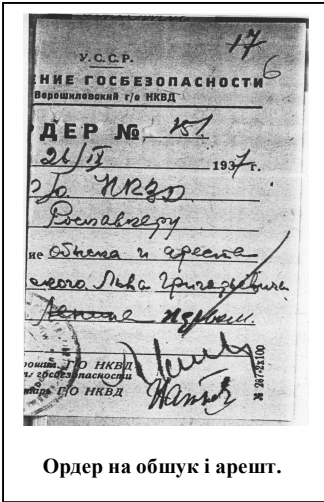 17
6
У.С.С.Р.
ЕНИЕ ГОСБЕЗОПАСНОСТИ
Ворошиловский г/о НКВД
РДЕР № 151
26/IX 1937 г.
г/о НКВД
ие обыска и ареста
ского Льва Григорьевича
Ленина
рошил. Г/О НКВД
госбезопасности
тарь Г/О НКВД
№ 287-2x100
Ордер на обшук і арешт.